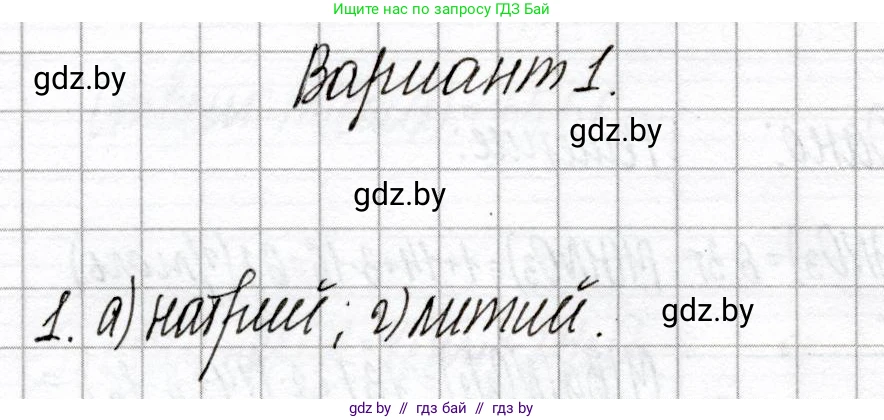 Ищите нас по запросу ГДЗ Бай
gdz.by
Вариант 1.
gdz.by
gdz.by
1. а) натрий; г) литий.
gdz.by
gdz.by // гдз бай // gdz.by